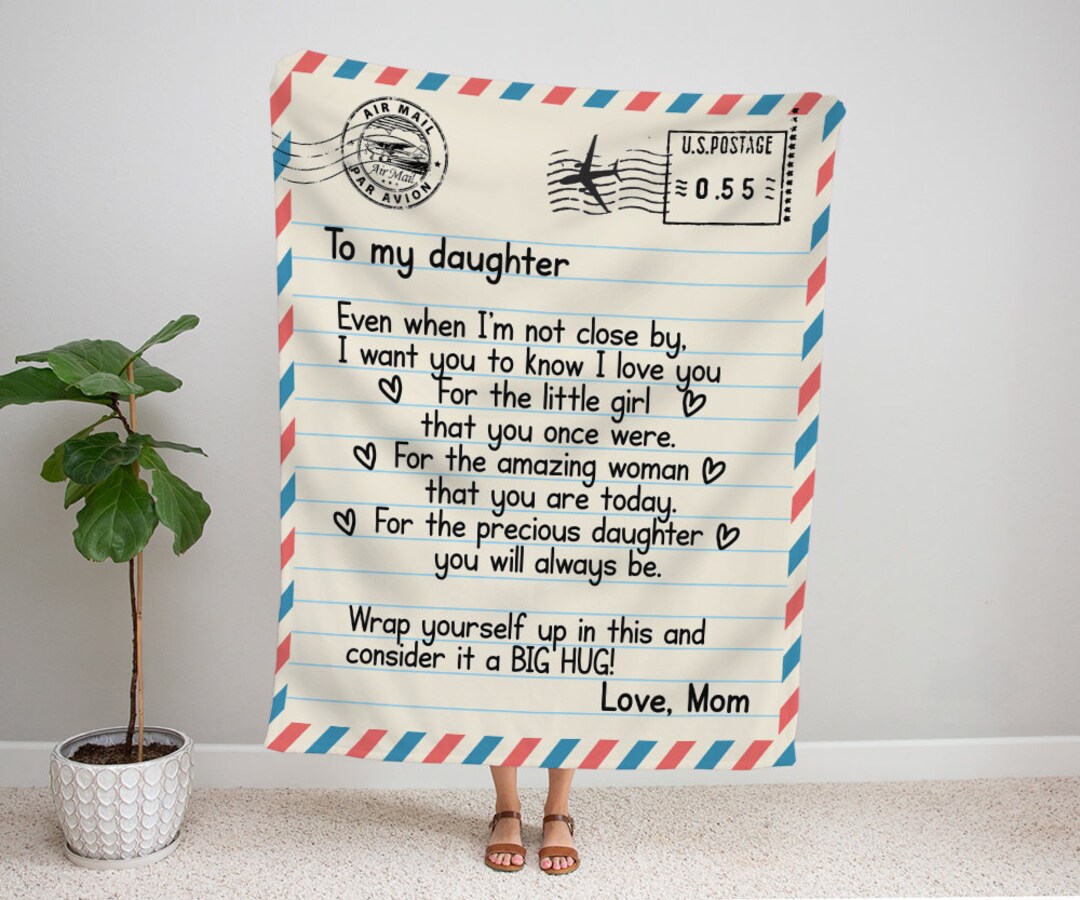 AIR MAIL
Air Mail
PAR AVION
U.S.POSTAGE
0.55
To my daughter
Even when I'm not close by,
I want you to know I love you
For the little girl
that you once were.
For the amazing woman
that you are today.
For the precious daughter
you will always be.
Wrap yourself up in this and
consider it a BIG HUG!
Love, Mom